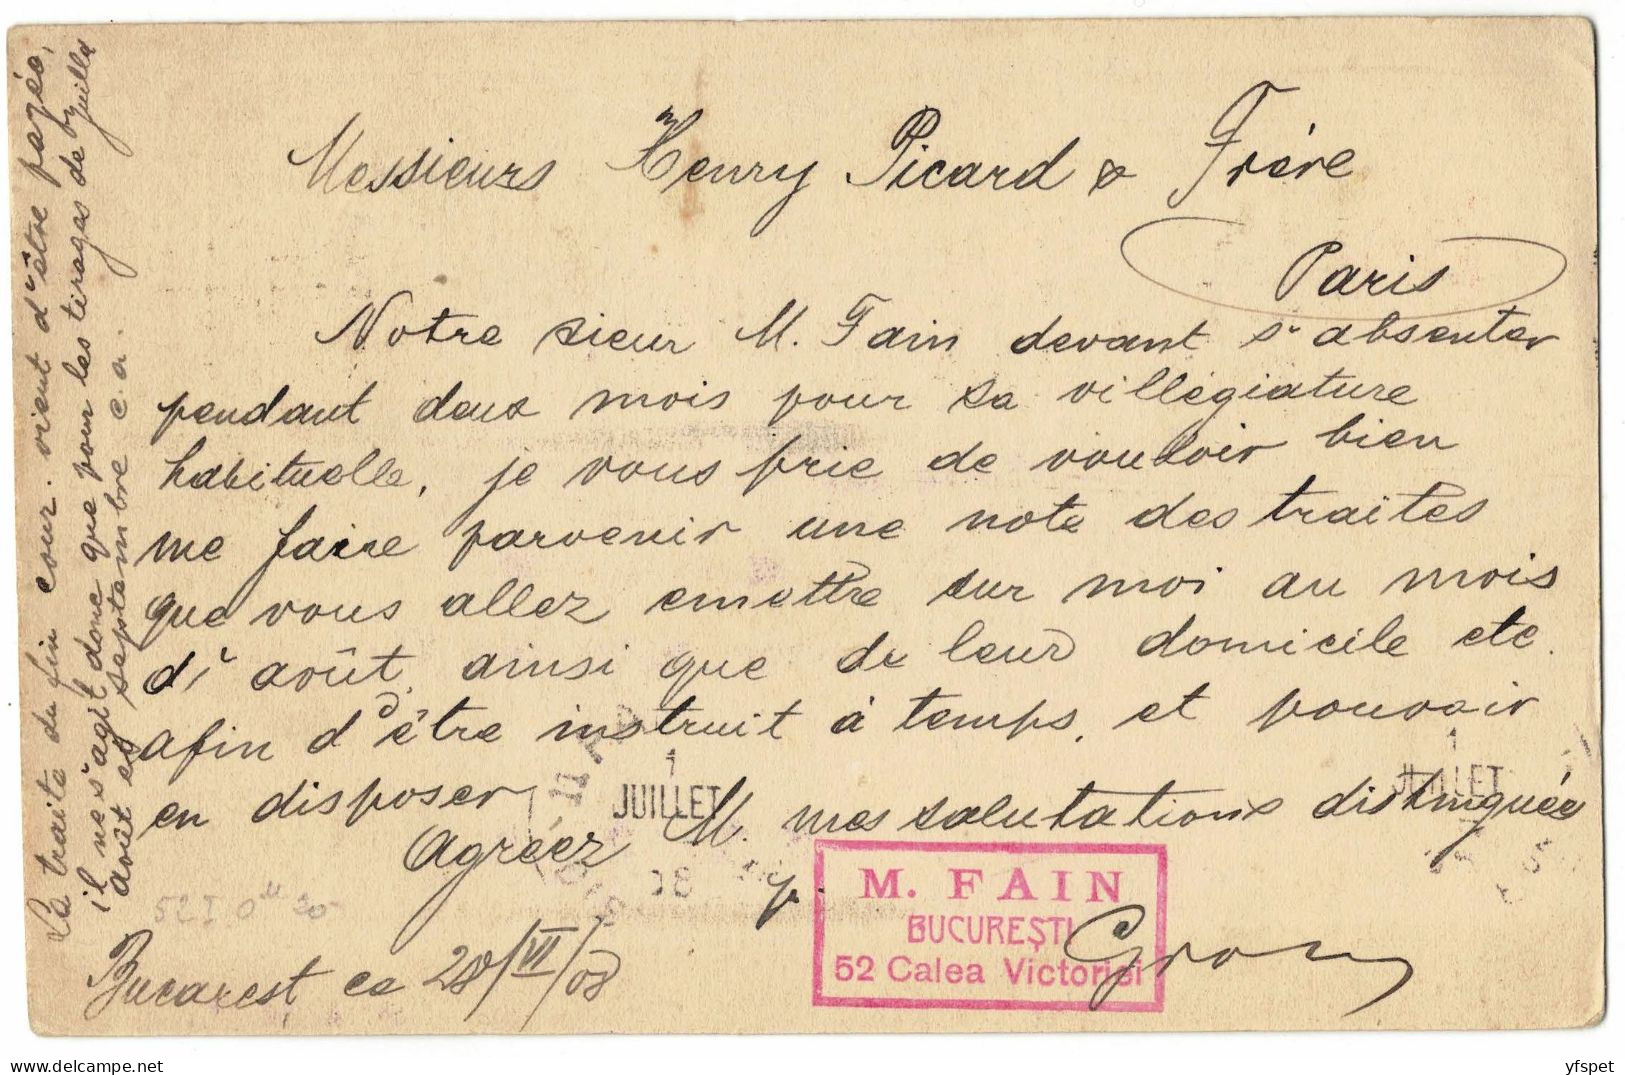 Messieurs Henry Picard & Frère
Paris
Notre sieur M. Fain devant s'absenter
pendant deux mois pour sa villégiature
habituelle, je vous prie de vouloir bien
me faire parvenir une note des traites
que vous allez emettre sur moi au mois
d'août, ainsi que de leur domicile etc.
afin d'être instruit à temps, et pouvoir
en disposer
Agréez M. mes salutations distinguées
p.
M. FAIN
BUCUREȘTI
52 Calea Victoriei
Bucarest ce 28/VI/08
La traite du fin cour. vient d'être payée,
il ne s'agit donc que pour les tirages de Juillet
août et septembre c. a.
1
JUILLET
08
1
JUILLET
delcampe.net
yfspet